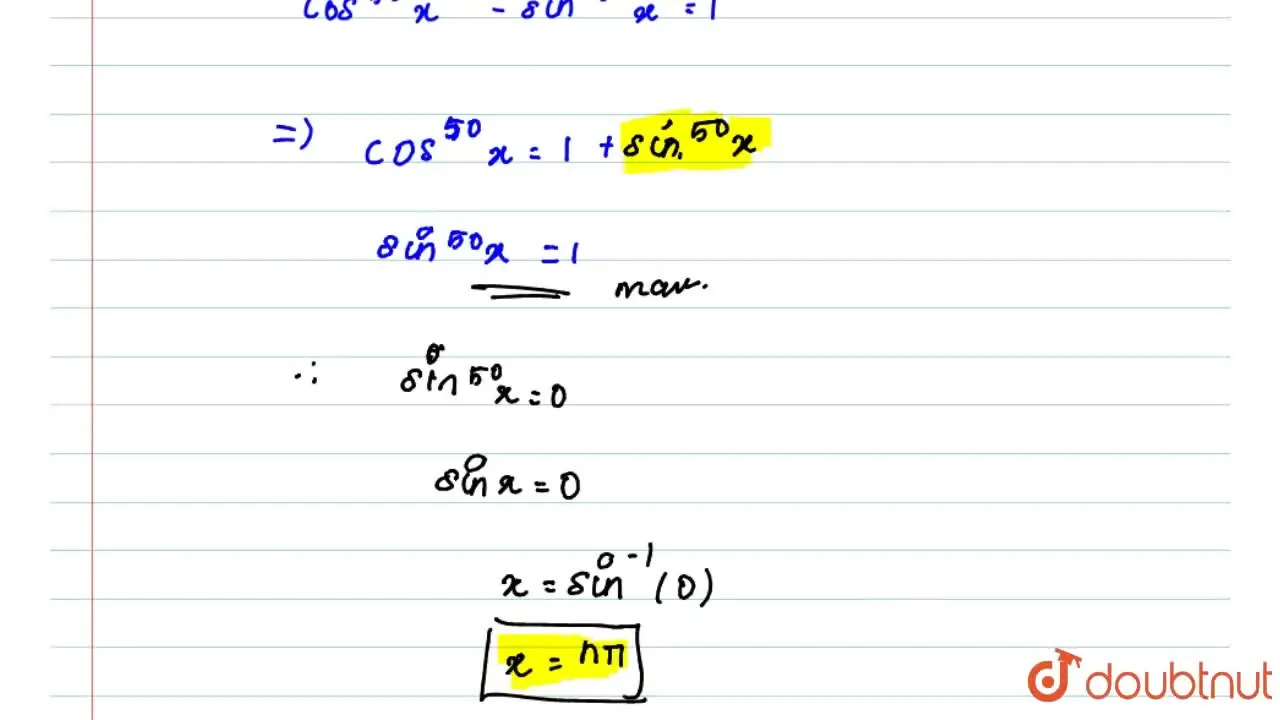 cos⁵⁰x - sin⁵⁰x = 1
=) cos⁵⁰x = 1 + sin⁵⁰x
sin⁵⁰x = 1
max.
∴ sin⁵⁰x = 0
sin x = 0
x = sin⁻¹(0)
x = nπ
doubtnut